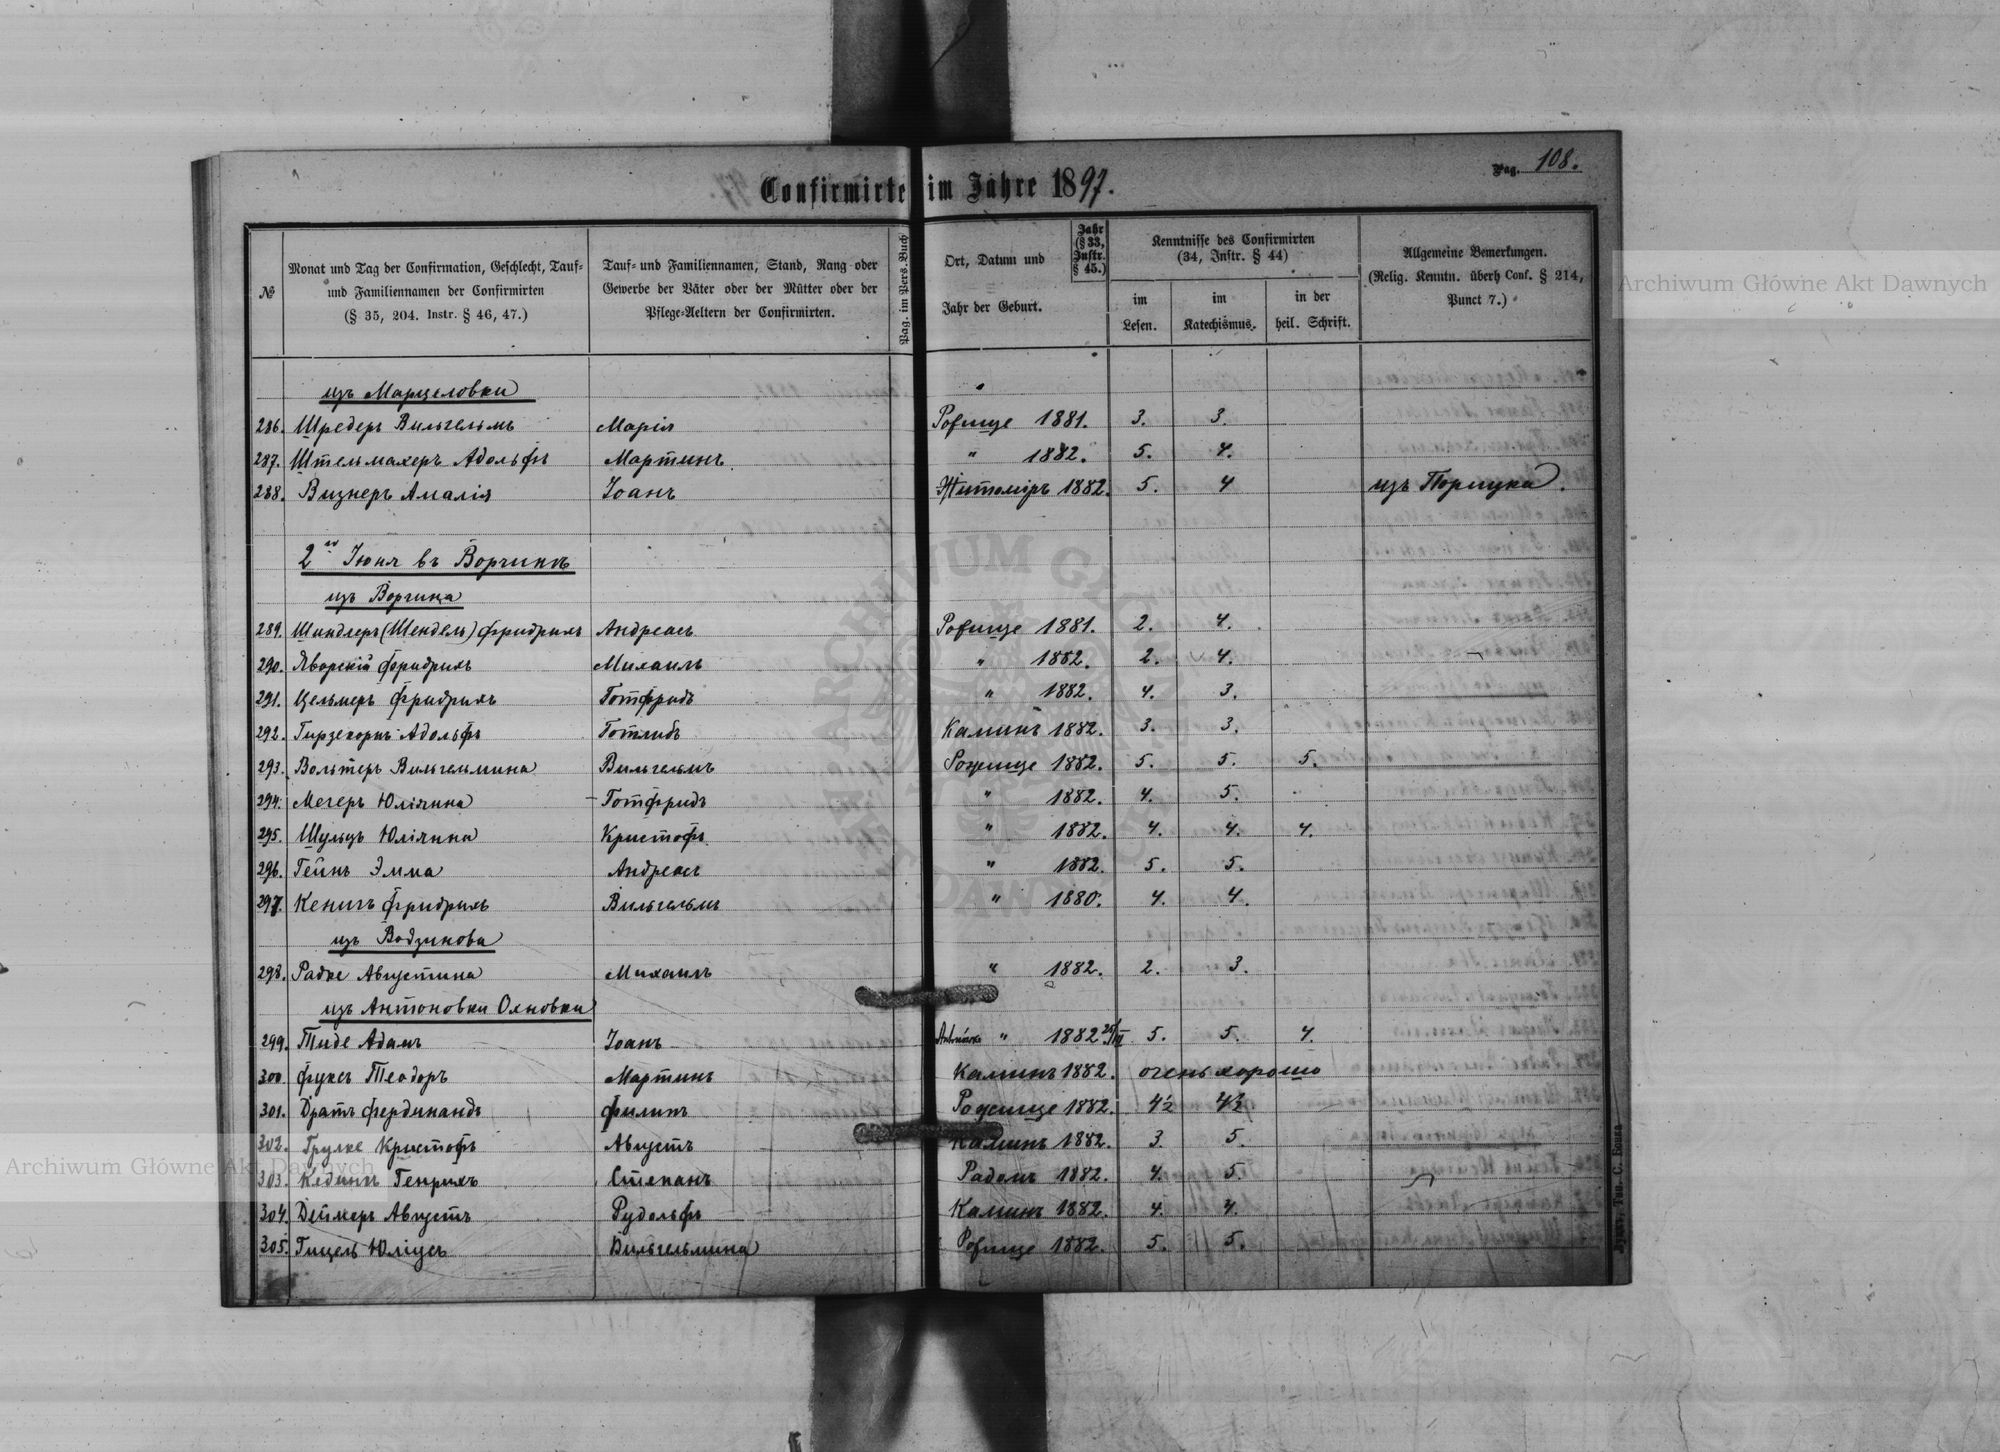 Pag. 108.
Confirmirte im Jahre 1897.
№
Monat und Tag der Confirmation, Geschlecht, Tauf-
und Familiennamen der Confirmirten
(§ 35, 204. Instr. § 46, 47.)
Tauf- und Familiennamen, Stand, Rang oder
Gewerbe der Väter oder der Mütter oder der
Pflege-Aeltern der Confirmirten.
Pag. im Pers. Buch
Ort, Datum und
Jahr der Geburt.
Jahr
(§ 33,
Instr.
§ 45.)
Kenntnisse des Confirmirten
(34, Instr. § 44)
im
Lesen.
im
Katechismus.
in der
heil. Schrift.
Allgemeine Bemerkungen.
(Relig. Kenntn. überh Conf. § 214,
Punct 7.)
изъ Марцеловки
286. Шредеръ Вильгельмъ Марія Рофище 1881. 3. 3.
287. Штельмахеръ Адольфъ Мартинъ " 1882. 5. 4.
288. Визнеръ Амалія Іоанъ Житоміръ 1882. 5. 4 изъ Порицка.
2го Іюня въ Ворчинѣ
изъ Ворчина
289. Шиндлеръ (Шендель) Фридрихъ Андреасъ Рофище 1881. 2. 4.
290. Яворскій Фридрихъ Михаилъ " 1882. 2. 4.
291. Цельмеръ Фридрихъ Готфридъ " 1882. 4. 3.
292. Гирзекорнъ Адольфъ Готлибъ Каминъ 1882. 3. 3.
293. Вольтеръ Вильгельмина Вильгельмъ Рожище 1882. 5. 5. 5.
294. Мегеръ Юліяна Готфридъ " 1882. 4. 5.
295. Шульцъ Юліянна Кристофъ " 1882. 4. 4. 4.
296. Гейнъ Эмма Андреасъ " 1882. 5. 5.
297. Кенигъ Фридрихъ Вильгельмъ " 1880. 4. 4.
изъ Водзинова
298. Радке Августина Михаилъ " 1882. 2. 3.
изъ Антоновки Ояновки
299. Тиде Адамъ Іоанъ " 1882 5. 5. 4.
300 Фуксъ Теодоръ Мартинъ Каминъ 1882. очень хорошо
301. Дратъ Фердинандъ Филипъ Рожище 1882. 4½ 4½
302. Грулке Кристофъ Августъ Каминъ 1882. 3. 5.
303. Генрихъ Степанъ Радомъ 1882. 4. 5.
304. Деймеръ Августъ Рудольфъ Каминъ 1882. 4. 4.
305. Гицель Юліусъ Вильгельмина Рофище 1882. 5. 5.
Луцкъ, Тип. С. Бонка
Archiwum Główne Akt Dawnych
Archiwum Główne Akt Dawnych
ARCHIWUM GŁÓWNE AKT DAWNYCH